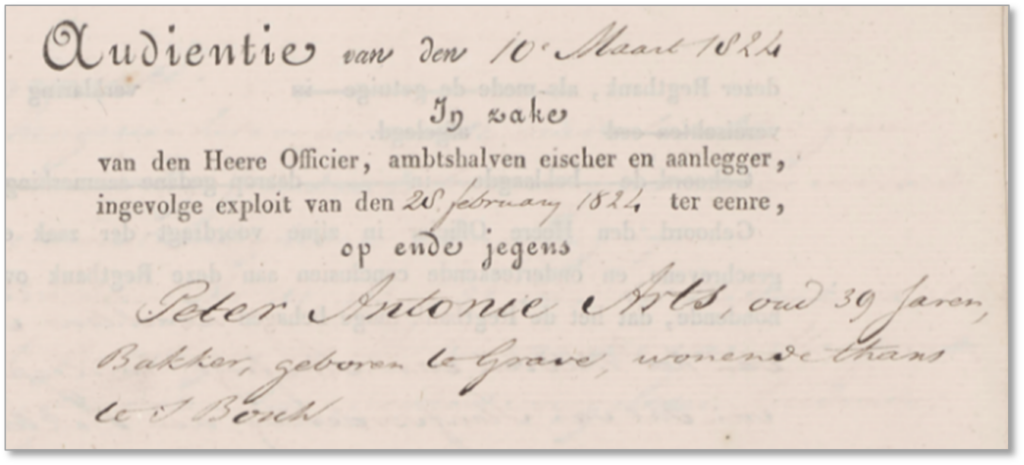 Audientie van den 10e Maart 1824
In zake
van den Heere Officier, ambtshalven eischer en aanlegger,
ingevolge exploit van den 28 february 1824 ter eenre,
op ende jegens
Peter Antonie Arts, oud 39 Jaren,
Bakker, geboren te Grave, wonende thans
te S Bosch